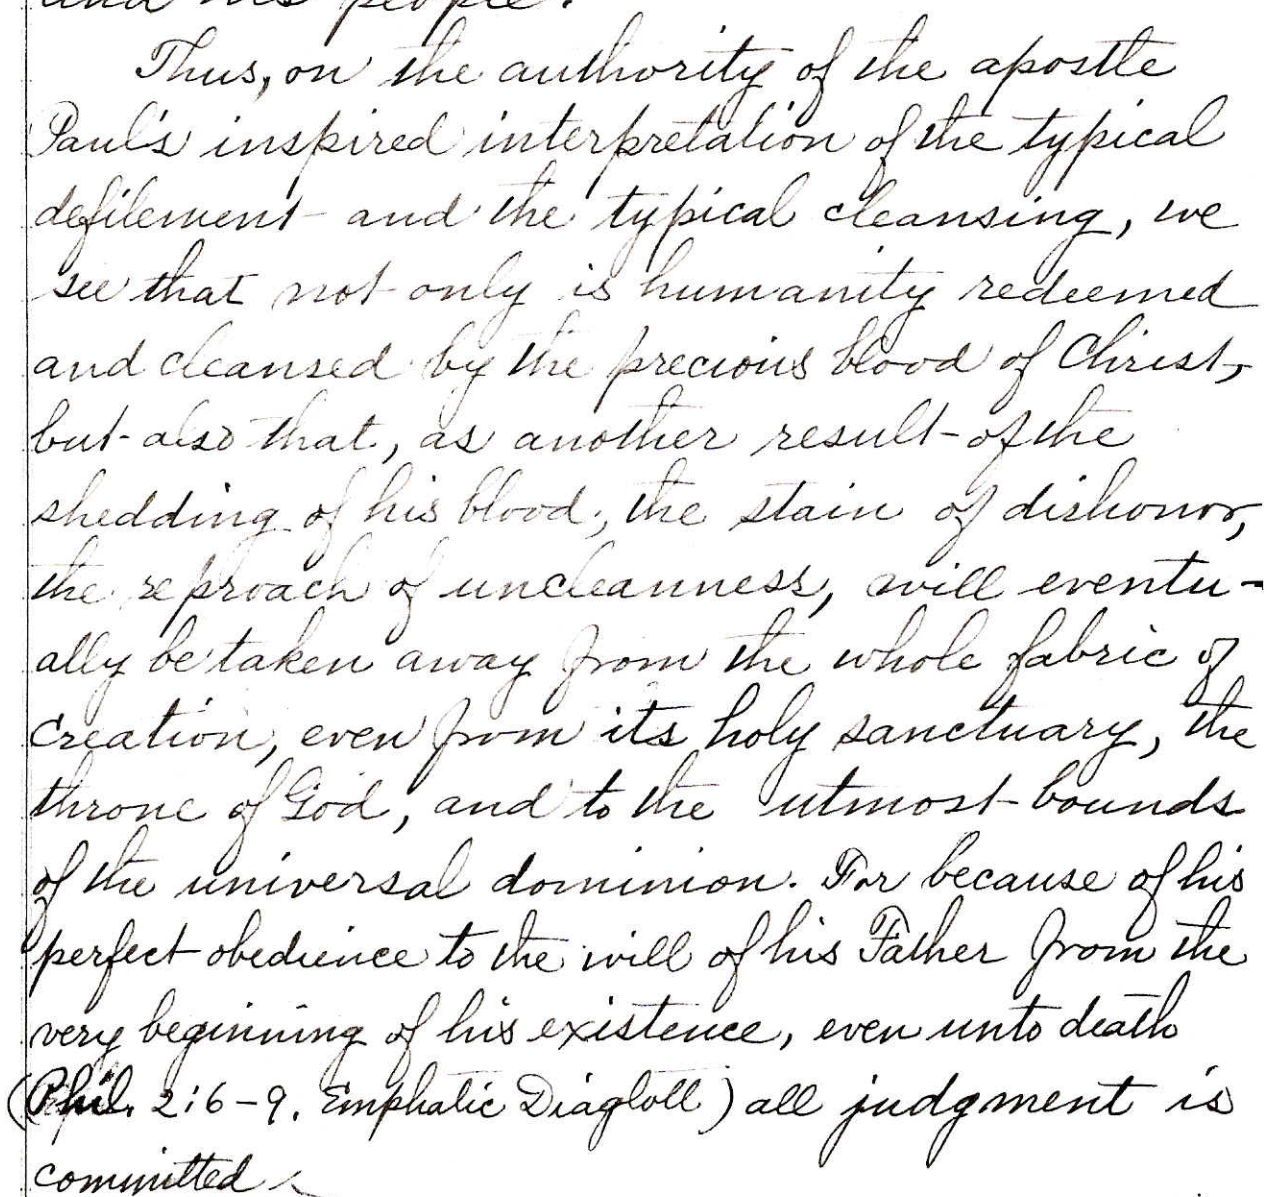 and his people.
Thus, on the authority of the apostle
Paul's inspired interpretation of the typical
defilement and the typical cleansing, we
see that not only is humanity redeemed
and cleansed by the precious blood of Christ,
but also that, as another result of the
shedding of his blood, the stain of dishonor,
the reproach of uncleanness, will eventu-
ally be taken away from the whole fabric of
creation, even from its holy sanctuary, the
throne of God, and to the utmost bounds
of the universal dominion. For because of his
perfect obedience to the will of his Father from the
very beginning of his existence, even unto death
(Phil. 2:6-9. Emphatic Diaglott) all judgment is
committed